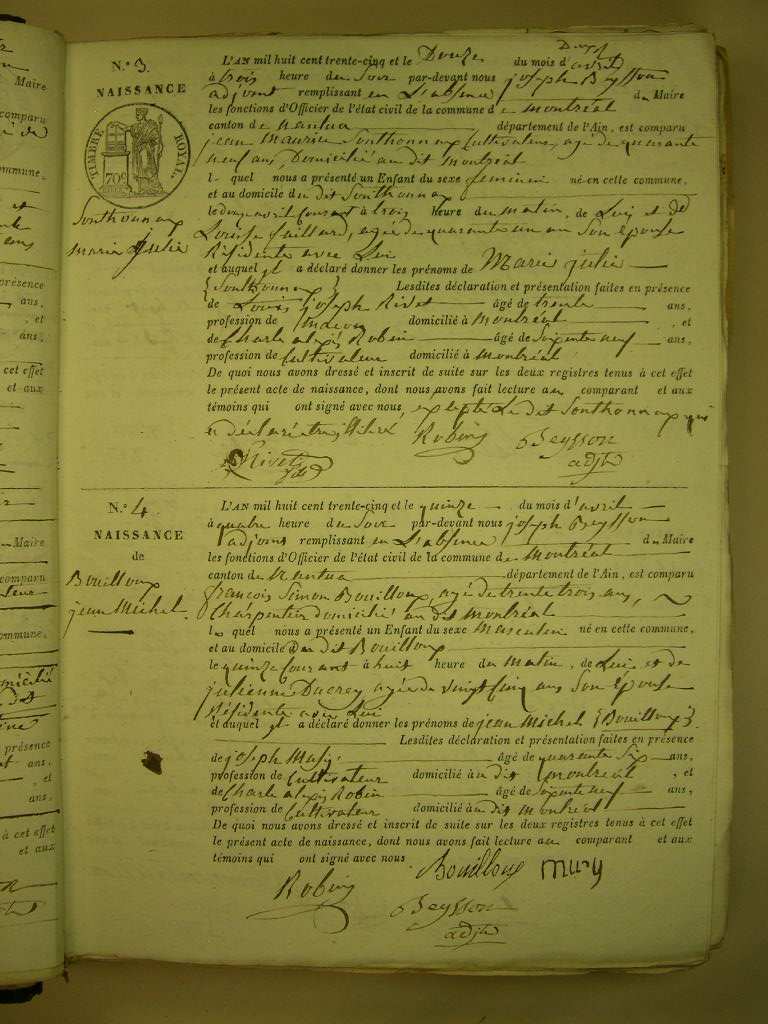 Maire
comparu
commune,
présence
ans,
, et
ans,
cet effet
et aux
Maire
comparu
commune,
présence
ans,
, et
ans,
à cet effet
et aux
N.° 3.
NAISSANCE
TIMBRE ROYAL
70c
Sonthonnax
marie julie
L'AN mil huit cent trente-cinq et le Douze du mois d'avril
à trois heure du Soir par-devant nous joseph Beysson
adjoint remplissant en L'absence du Maire
les fonctions d'Officier de l'état civil de la commune de montréal
canton de nantua département de l'Ain, est comparu
jean Maurice Sonthonnax Cultivateur, agé de quarante
neuf ans Domicilié au dit montréal
lequel nous a présenté un Enfant du sexe feminin né en cette commune,
et au domicile du dit Sonthonnax
le douze avril courant à trois heure du matin, de Lui et de
Louise faillard, agée de quarante un an Son épouse
Résidente avec Lui
et auquel il a déclaré donner les prénoms de Marie julie
{Sonthonnax} Lesdites déclaration et présentation faites en présence
de Louis joseph Rivet âgé de trente ans,
profession de maçon domicilié à Montréal , et
de Charle alexis Robin âgé de soixente neuf ans,
profession de Cultivateur domicilié à montréal
De quoi nous avons dressé et inscrit de suite sur les deux registres tenus à cet effet
le présent acte de naissance, dont nous avons fait lecture au comparant et aux
témoins qui ont signé avec nous, excepté Le dit Sonthonnax qui
a déclaré être illitéré Robin Beysson
Rivet adjt
N.° 4
NAISSANCE
de
Bouilloux
jean Michel.
L'AN mil huit cent trente-cinq et le quinze du mois d'avril
à quatre heure du Soir par-devant nous joseph Beysson
adjoint remplissant en L'absence du Maire
les fonctions d'Officier de l'état civil de la commune de Montréal
canton de Nantua département de l'Ain, est comparu
françois Simon Bouilloux, agé de trente trois ans,
Charpentier domicilié au dit Montréal
lequel nous a présenté un Enfant du sexe Masculin né en cette commune,
et au domicile du dit Bouilloux
le quinze Courant à huit heure du Matin, de Lui et de
julienne Ducrey agée de vingt cinq ans Son épouse
Résidente avec Lui
et auquel il a déclaré donner les prénoms de jean Michel {Bouilloux}
Lesdites déclaration et présentation faites en présence
de joseph âgé de quarente Six ans,
profession de Cultivateur domicilié au dit montréal , et
de Charle alexis Robin âgé de soixente neuf ans,
profession de Cultivateur domicilié au dit montréal
De quoi nous avons dressé et inscrit de suite sur les deux registres tenus à cet effet
le présent acte de naissance, dont nous avons fait lecture au comparant et aux
témoins qui ont signé avec nous Bouilloux
Robin
Beysson
adjt